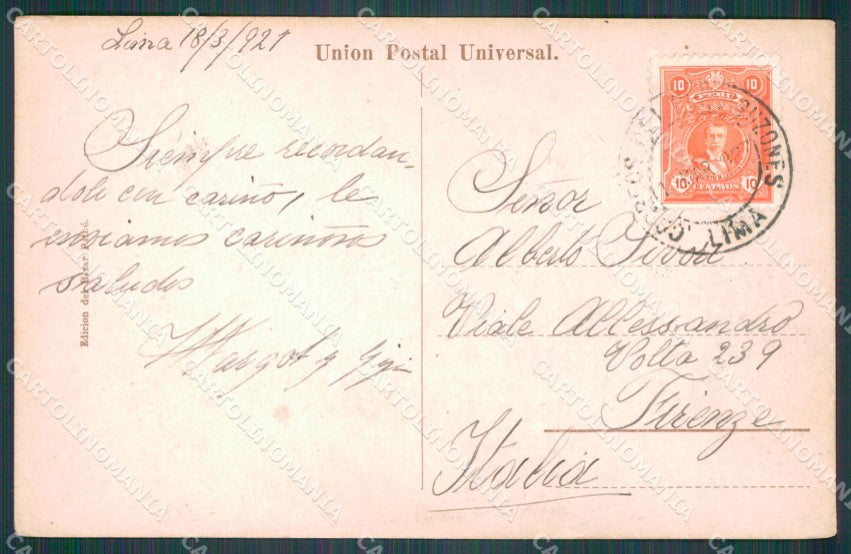 Lima 18/3/921
Union Postal Universal.
Siempre recordan-
dole con cariño, le
enviamos cariñosos
saludos
Margot y Gigi
Edicion del Bazar
10 10
PERU
10 CENTAVOS 10
BUZONES
CORREOS LIMA
Señor
Alberto
Viale Allessandro
Volta 239
Firenze
Italia
CARTOLINOMANIA